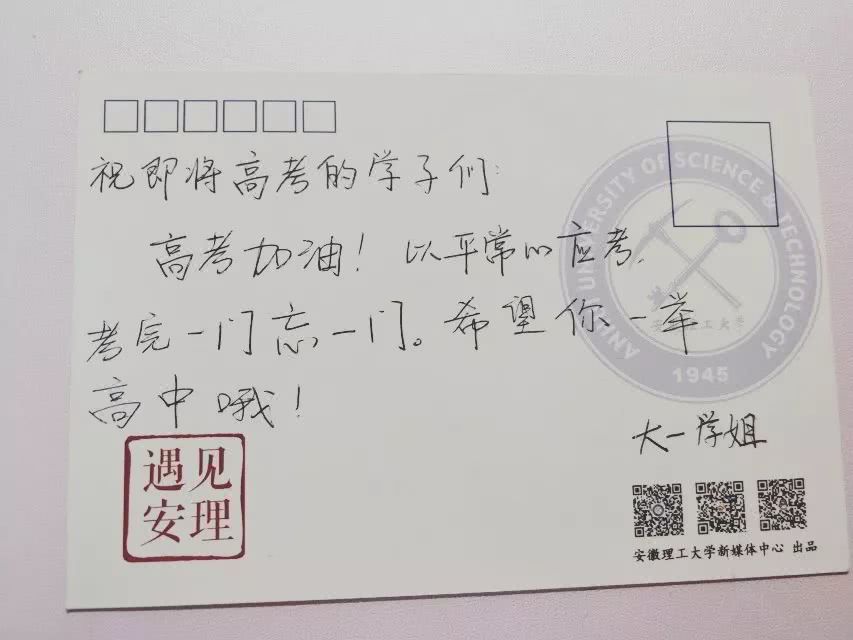 祝即将高考的学子们:
高考加油！以平常心应考,
考完一门忘一门。希望你一举
高中哦！
大一学姐
遇见
安理
ANHUI UNIVERSITY OF SCIENCE & TECHNOLOGY
安徽理工大学
1945
安徽理工大学新媒体中心 出品